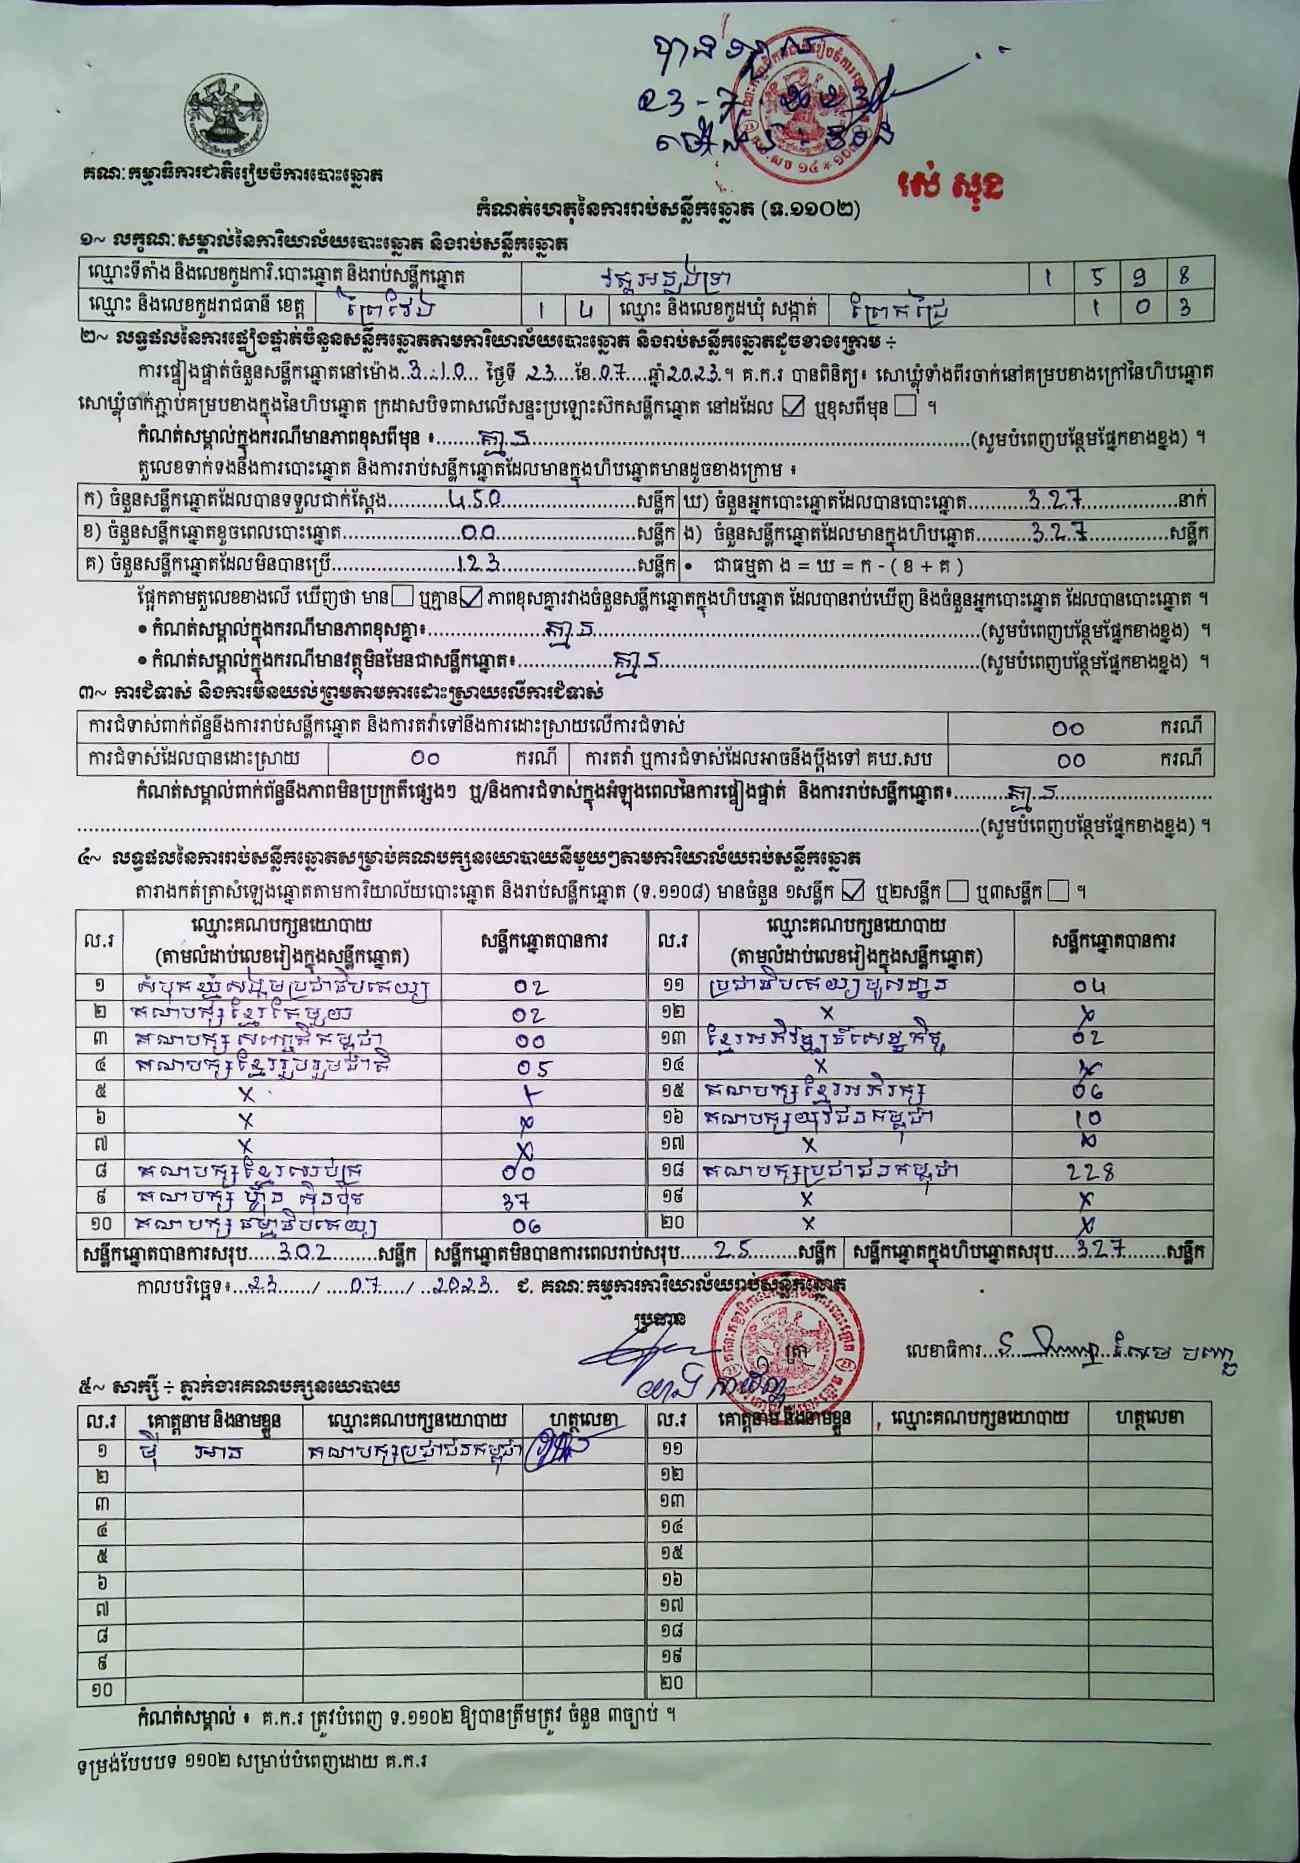 បានទទួល
23-7-2023
គណៈកម្មាធិការជាតិរៀបចំការបោះឆ្នោត
រស់ សុខ
កំណត់ហេតុនៃការរាប់សន្លឹកឆ្នោត (ទ.១១០២)
១~ លក្ខណៈសម្គាល់នៃការិយាល័យបោះឆ្នោត និងរាប់សន្លឹកឆ្នោត
ឈ្មោះទីតាំង និងលេខកូដការិ.បោះឆ្នោត និងរាប់សន្លឹកឆ្នោត 1 5 9 8
ឈ្មោះ និងលេខកូដរាជធានី ខេត្ត ព្រៃវែង 1 4 ឈ្មោះ និងលេខកូដឃុំ សង្កាត់ ព្រែកជ្រៃ 1 0 3
២~ លទ្ធផលនៃការផ្ទៀងផ្ទាត់ចំនួនសន្លឹកឆ្នោតតាមការិយាល័យបោះឆ្នោត និងរាប់សន្លឹកឆ្នោតដូចខាងក្រោម ÷
ការផ្ទៀងផ្ទាត់ចំនួនសន្លឹកឆ្នោតនៅម៉ោង 3:10 ថ្ងៃទី 23 ខែ 07 ឆ្នាំ 2023 ។ គ.ក.រ បានពិនិត្យ៖ សោឃ្លុំទាំងពីរចាក់នៅគម្របខាងក្រៅនៃហិបឆ្នោត
សោឃ្លុំចាក់ភ្ជាប់គម្របខាងក្នុងនៃហិបឆ្នោត ក្រដាសបិទពាសលើសន្ទះប្រឡោះស៊កសន្លឹកឆ្នោត នៅដដែល ☑ ឬខុសពីមុន ☐ ។
កំណត់សម្គាល់ក្នុងករណីមានភាពខុសពីមុន ៖ គ្មាន (សូមបំពេញបន្ថែមផ្នែកខាងខ្នង) ។
តួលេខទាក់ទងនឹងការបោះឆ្នោត និងការរាប់សន្លឹកឆ្នោតដែលមានក្នុងហិបឆ្នោតមានដូចខាងក្រោម ៖
ក) ចំនួនសន្លឹកឆ្នោតដែលបានទទួលជាក់ស្តែង 450 សន្លឹក ឃ) ចំនួនអ្នកបោះឆ្នោតដែលបានបោះឆ្នោត 327 នាក់
ខ) ចំនួនសន្លឹកឆ្នោតខូចពេលបោះឆ្នោត 00 សន្លឹក ង) ចំនួនសន្លឹកឆ្នោតដែលមានក្នុងហិបឆ្នោត 327 សន្លឹក
គ) ចំនួនសន្លឹកឆ្នោតដែលមិនបានប្រើ 123 សន្លឹក • ជាធម្មតា ង = ឃ = ក - ( ខ + គ )
ផ្អែកតាមតួលេខខាងលើ ឃើញថា មាន ☐ ឬគ្មាន ☑ ភាពខុសគ្នារវាងចំនួនសន្លឹកឆ្នោតក្នុងហិបឆ្នោត ដែលបានរាប់ឃើញ និងចំនួនអ្នកបោះឆ្នោត ដែលបានបោះឆ្នោត ។
• កំណត់សម្គាល់ក្នុងករណីមានភាពខុសគ្នា៖ គ្មាន (សូមបំពេញបន្ថែមផ្នែកខាងខ្នង) ។
• កំណត់សម្គាល់ក្នុងករណីមានវត្ថុមិនមែនជាសន្លឹកឆ្នោត៖ គ្មាន (សូមបំពេញបន្ថែមផ្នែកខាងខ្នង) ។
៣~ ការជំទាស់ និងការមិនយល់ព្រមតាមការដោះស្រាយលើការជំទាស់
ការជំទាស់ពាក់ព័ន្ធនឹងការរាប់សន្លឹកឆ្នោត និងការតវ៉ាទៅនឹងការដោះស្រាយលើការជំទាស់ 00 ករណី
ការជំទាស់ដែលបានដោះស្រាយ 00 ករណី ការតវ៉ា ឬការជំទាស់ដែលអាចនឹងប្តឹងទៅ គឃ.សប 00 ករណី
កំណត់សម្គាល់ពាក់ព័ន្ធនឹងភាពមិនប្រក្រតីផ្សេងៗ ឬ/និងការជំទាស់ក្នុងអំឡុងពេលនៃការផ្ទៀងផ្ទាត់ និងការរាប់សន្លឹកឆ្នោត៖ គ្មាន
(សូមបំពេញបន្ថែមផ្នែកខាងខ្នង) ។
៤~ លទ្ធផលនៃការរាប់សន្លឹកឆ្នោតសម្រាប់គណបក្សនយោបាយនីមួយៗតាមការិយាល័យរាប់សន្លឹកឆ្នោត
តារាងកត់ត្រាសំឡេងឆ្នោតតាមការិយាល័យបោះឆ្នោត និងរាប់សន្លឹកឆ្នោត (ទ.១១០៨) មានចំនួន ១សន្លឹក ☑ ឬ២សន្លឹក ☐ ឬ៣សន្លឹក ☐ ។
ល.រ ឈ្មោះគណបក្សនយោបាយ (តាមលំដាប់លេខរៀងក្នុងសន្លឹកឆ្នោត) សន្លឹកឆ្នោតបានការ ល.រ ឈ្មោះគណបក្សនយោបាយ (តាមលំដាប់លេខរៀងក្នុងសន្លឹកឆ្នោត) សន្លឹកឆ្នោតបានការ
១ សំបុកឃ្មុំសង្គមប្រជាធិបតេយ្យ 02 ១១ ប្រជាធិបតេយ្យមូលដ្ឋាន 04
២ គណបក្សខ្មែរតែមួយ 02 ១២ x x
៣ គណបក្សសញ្ជាតិកម្ពុជា 00 ១៣ ខ្មែរអភិវឌ្ឍន៍សេដ្ឋកិច្ច 02
៤ គណបក្សខ្មែររួបរួមជាតិ 05 ១៤ x x
៥ x x ១៥ គណបក្សខ្មែរអភិរក្ស 06
៦ x x ១៦ គណបក្សយុវជនកម្ពុជា 10
៧ x x ១៧ x x
៨ គណបក្សខ្មែរឈប់ក្រ 00 ១៨ គណបក្សប្រជាជនកម្ពុជា 228
៩ គណបក្ស ហ្វ៊ុនស៊ិនប៉ិច 37 ១៩ x x
១០ គណបក្ស ធម្មាធិបតេយ្យ 06 ២០ x x
សន្លឹកឆ្នោតបានការសរុប 302 សន្លឹក សន្លឹកឆ្នោតមិនបានការពេលរាប់សរុប 25 សន្លឹក សន្លឹកឆ្នោតក្នុងហិបឆ្នោតសរុប 327 សន្លឹក
កាលបរិច្ឆេទ៖ 23 / 07 / 2023 ជ. គណៈកម្មការការិយាល័យរាប់សន្លឹកឆ្នោត
ប្រធាន
ត្រា
លេខាធិការ
៥~ សាក្សី ÷ ភ្នាក់ងារគណបក្សនយោបាយ
ល.រ គោត្តនាម និងនាមខ្លួន ឈ្មោះគណបក្សនយោបាយ ហត្ថលេខា ល.រ គោត្តនាម និងនាមខ្លួន ឈ្មោះគណបក្សនយោបាយ ហត្ថលេខា
១ ម៉ី អាន គណបក្សប្រជាជនកម្ពុជា ១១
២ ១២
៣ ១៣
៤ ១៤
៥ ១៥
៦ ១៦
៧ ១៧
៨ ១៨
៩ ១៩
១០ ២០
កំណត់សម្គាល់ ៖ គ.ក.រ ត្រូវបំពេញ ទ.១១០២ ឱ្យបានត្រឹមត្រូវ ចំនួន ៣ច្បាប់ ។
ទម្រង់បែបបទ ១១០២ សម្រាប់បំពេញដោយ គ.ក.រ